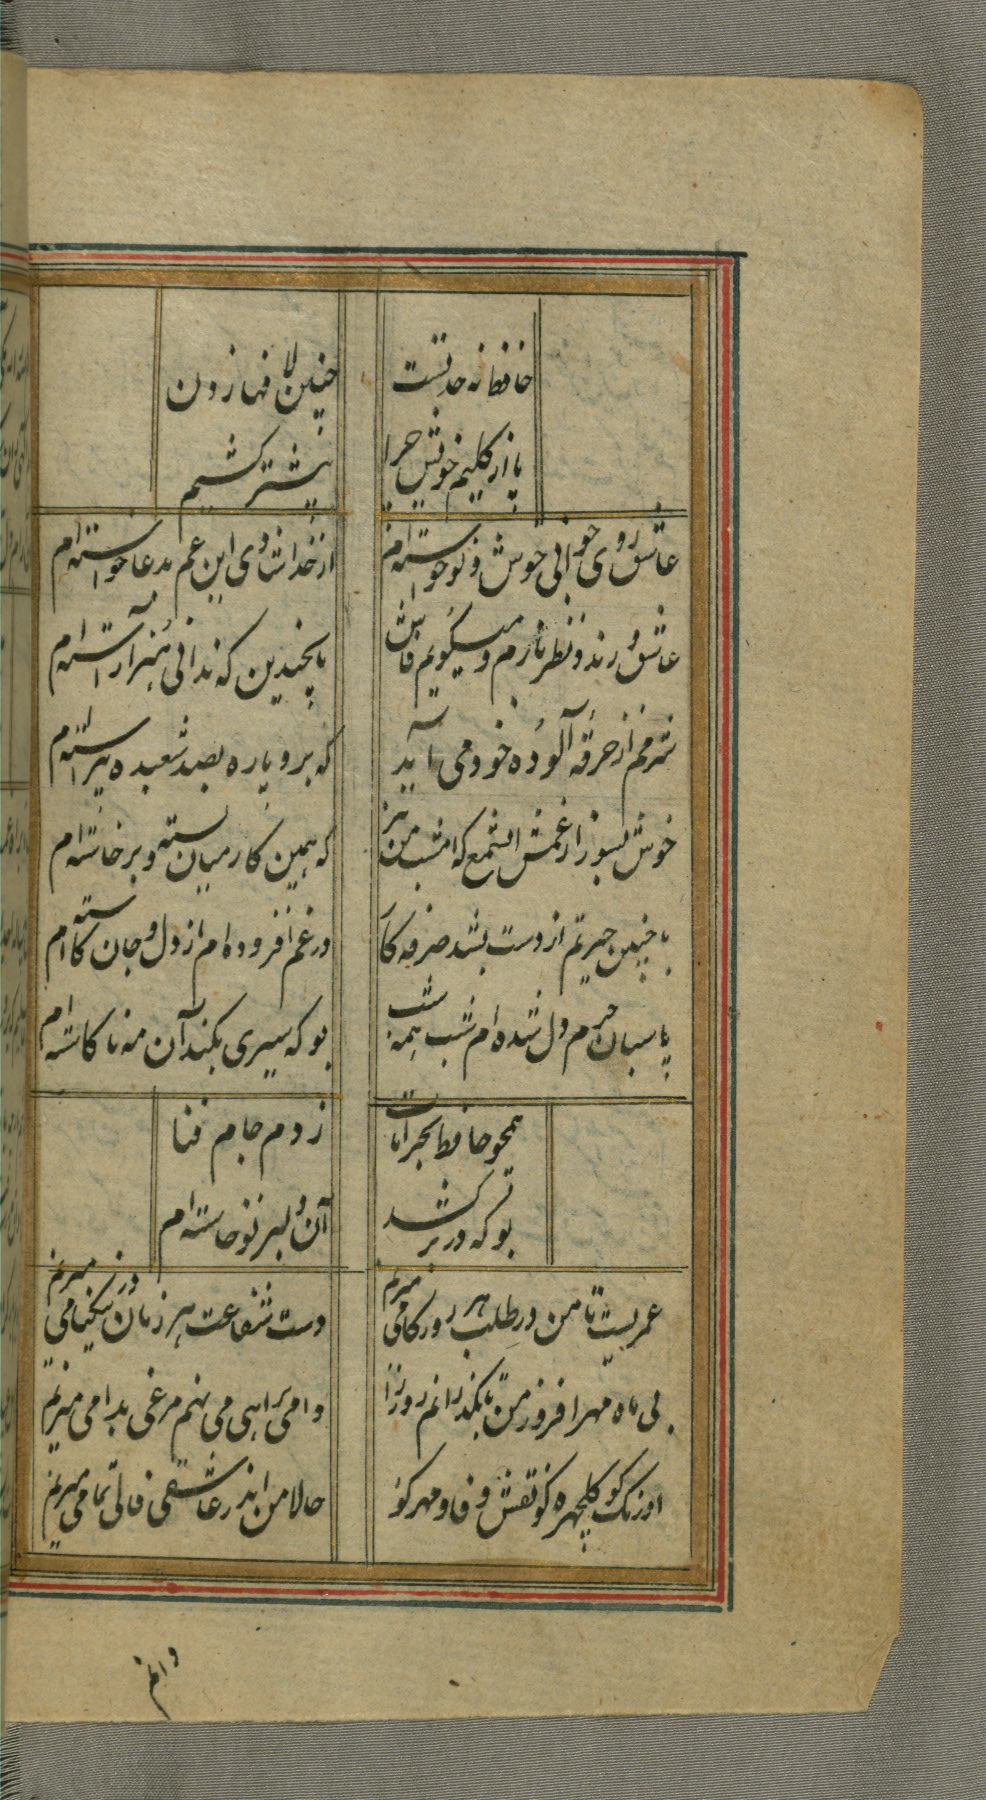 حافظا نه حد تست
چنین لا فها زدن
پا از کلیم خویش چرا
بیشتر کشیم
عاشق روی جوانی خوش و نوخواسته ام
از خدا شادی این غم بدعا خواسته ام
عاشق و رند و نظر بازم و میگویم فاش
تا بچندین که ندانی هنر آراسته ام
شرمم از خرقه آلوده خود می آید
که برو پاره بصد شعبده پیراسته ام
خوش بسوز از غمش ای شمع که امشب من نیز
که همین کار میان بسته و برخاسته ام
با چنین حیرتم از دست بشد صرفه کار
در غم افزوده ام از دل و جان کاسته ام
پاسبان حرم دل شده ام شب همه شب
بو که سیری بکند آن مه نا کاسته ام
همچو حافظ بخرابات
زدم جام فنا
بو که در بر کشد
آن دلبر نوخاسته ام
عمریست تا من در طلب هر روز کامی میزنم
دست شفاعت هر زمان در نیکنامی میزنم
بی ماه مهر افروز من تا بگذرانم روز را
دامی براهی می نهم مرغی بدامی میزنم
اورنگ کو گلچهره کو نقش وفا و مهر کو
حالا من اندر عاشقی فالی تمامی میزنم
دانم